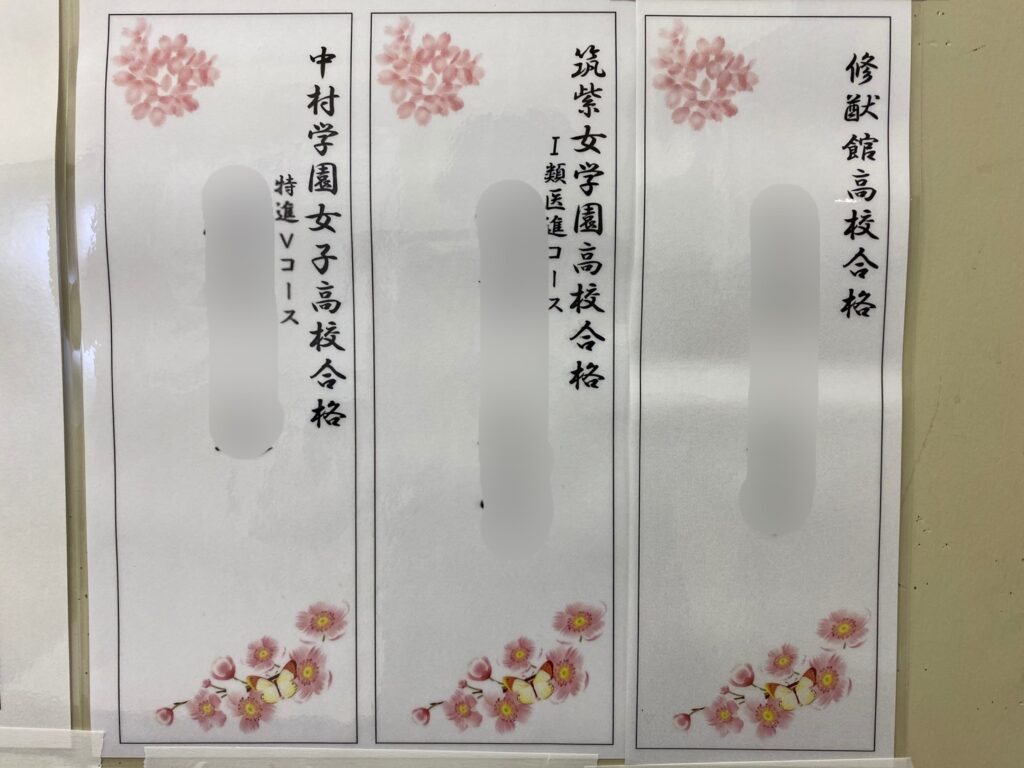 修猷館高校合格
筑紫女学園高校合格
Ⅰ類医進コース
中村学園女子高校合格
特進Vコース